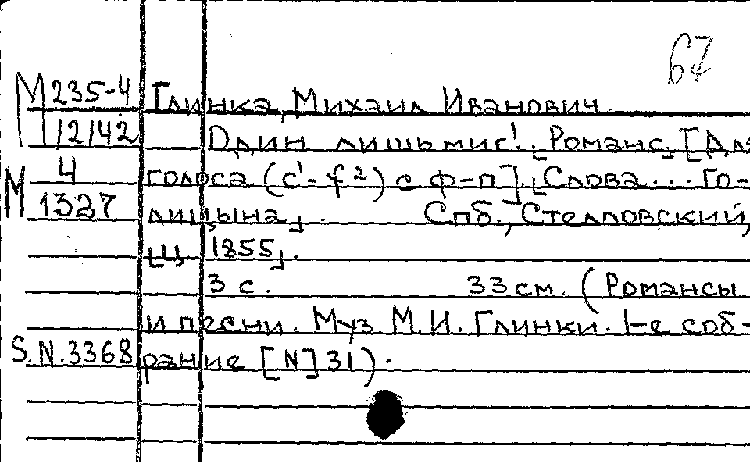 67
М 235-4 Глинка, Михаил Иванович.
1/2142 Один лишь миг! Романс. [Для
М 4 голоса (с¹-f²) с ф-п]. Слова... Го-
1327 лицына. Спб., Стелловский,
[ц. 1855].
3 с. 33 см. (Романсы
и песни. Муз М. И. Глинки. 1-е соб-
S.N.3368 рание [N] 31).